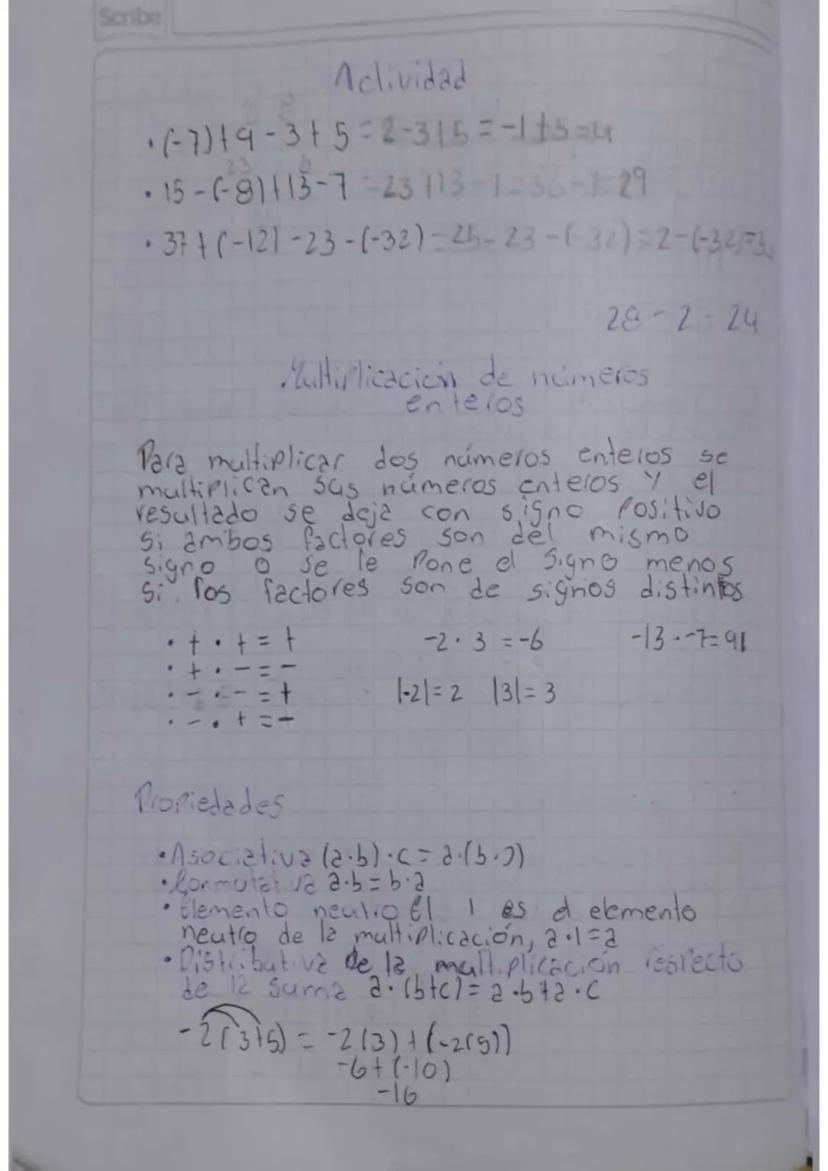 Scribe
Actividad
• (-7)+9-3+5=2-3+5=-1+5=4
• 15-(-8)+13-7=23+13-7=36-7=29
• 37+(-12)-23-(-32)=25-23-(-32)=2-(-32)=34
28-2-24
Multiplicación de números
enteros
Para multiplicar dos números enteros se
multiplican sus números enteros y el
resultado se deja con signo positivo
si ambos factores son del mismo
signo o se le pone el signo menos
si los factores son de signos distintos
• + • + = +
• + • - = -
• - • - = +
• - • + = -
-2 · 3 = -6
-13 · -7 = 91
|-2| = 2 |3| = 3
Propiedades
• Asociativa (a·b)·c = a·(b·c)
• Conmutativa a·b = b·a
• Elemento neutro El 1 es el elemento
neutro de la multiplicación, a·1=a
• Distributiva de la multiplicación respecto
de la suma a·(b+c) = a·b+a·c
-2(3+5) = -2(3)+(-2(5))
-6+(-10)
-16